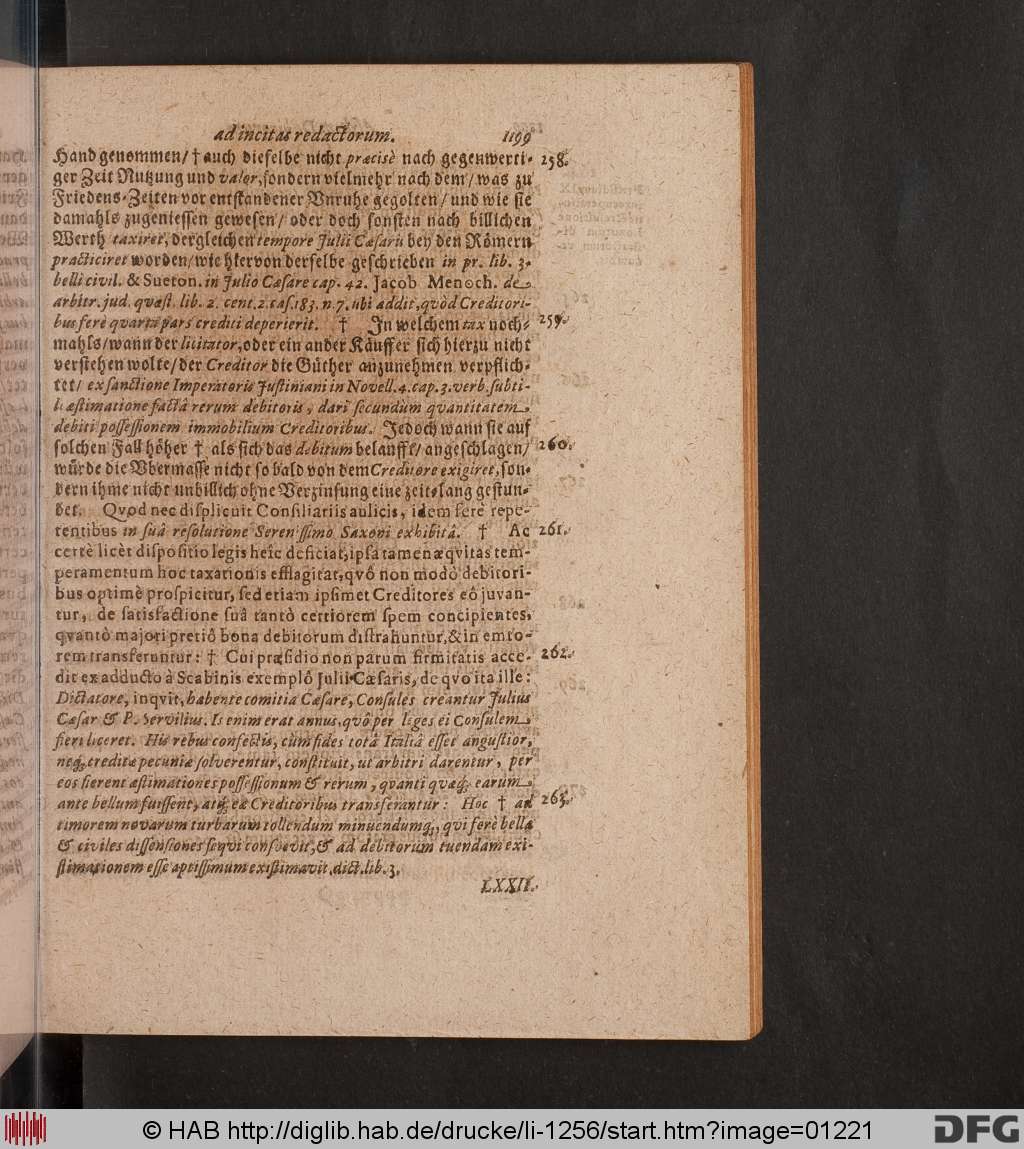 ad incitas redactorum. 1199
Hand genommen/ † auch dieselbe nicht præcisè nach gegenwerti- 258.
ger Zeit Nutzung und valor, sondern vielmehr nach dem/ was zu
Friedens-Zeiten vor entstandener Vnruhe gegolten/ und wie sie
damahls zugeniessen gewesen/ oder doch sonsten nach billichen
Werth taxiret, dergleichen tempore Julii Cæsaris bey den Römern
practiciret worden/ wie hiervon derselbe geschrieben in pr. lib. 3.
belli civil. & Sueton. in Julio Cæsare cap. 42. Jacob Menoch. de
arbitr. jud. quæst. lib. 2. cent. 2. cas. 183. n. 7. ubi addit, qvòd Creditori-
bus ferè qvarta pars crediti deperierit. † In welchem tax noch- 259.
mahls/ wann der licitator, oder ein ander Käuffer sich hierzu nicht
verstehen wolte/ der Creditor die Güther anzunehmen verpflich-
tet/ ex sanctione Imperatoris Justiniani in Novell. 4. cap. 3. verb. subti-
li æstimatione factâ rerum debitoris, dari secundùm qvantitatem
debiti possessionem immobilium Creditoribus. Jedoch wann sie auf
solchen Fall höher † als sich das debitum belaufft/ angeschlagen/ 260.
würde die Vbermasse nicht so bald von dem Creditore exigiret, son-
dern ihme nicht unbillich ohne Verzinsung eine zeit-lang gestun-
det. Qvod nec displicuit Consiliariis aulicis, idem ferè repe-
tentibus in suâ resolutione Serenissimo Saxoni exhibitâ. † Ac 261.
certè licèt dispositio legis heic deficiat, ipsa tamen æqvitas tem-
peramentum hoc taxationis efflagitat, qvô non modò debitori-
bus optimè prospicitur, sed etiam ipsimet Creditores eô juvan-
tur, de satisfactione suâ tantò certiorem spem concipientes,
qvantò majori pretiô bona debitorum distrahuntur, & in emto-
rem transferuntur: † Cui præsidio non parum firmitatis acce- 262.
dit ex adducto à Scabinis exemplô Julii Cæsaris, de qvo ita ille:
Dictatore, inqvit, habente comitia Cæsare, Consules creantur Julius
Cæsar & P. Servilius. Is enim erat annus, qvô per leges ei Consulem
fieri liceret. His rebus confectis, cùm fides totâ Italiâ esset angustior,
neq; creditæ pecuniæ solverentur, constituit, ut arbitri darentur, per
eos fierent æstimationes possessionum & rerum, qvanti qvæq; earum
ante bellum fuissent, atq; eæ Creditoribus transferantur: Hoc † ad 263.
timorem novarum turbarum tollendum minuendumq;, qui ferè bella
& civiles dissensiones seqvi consvevit, & ad debitorum tuendam exi-
stimationem esse aptissimum existimavit, dict. lib. 3.
LXXII.
© HAB http://diglib.hab.de/drucke/li-1256/start.htm?image=01221
DFG